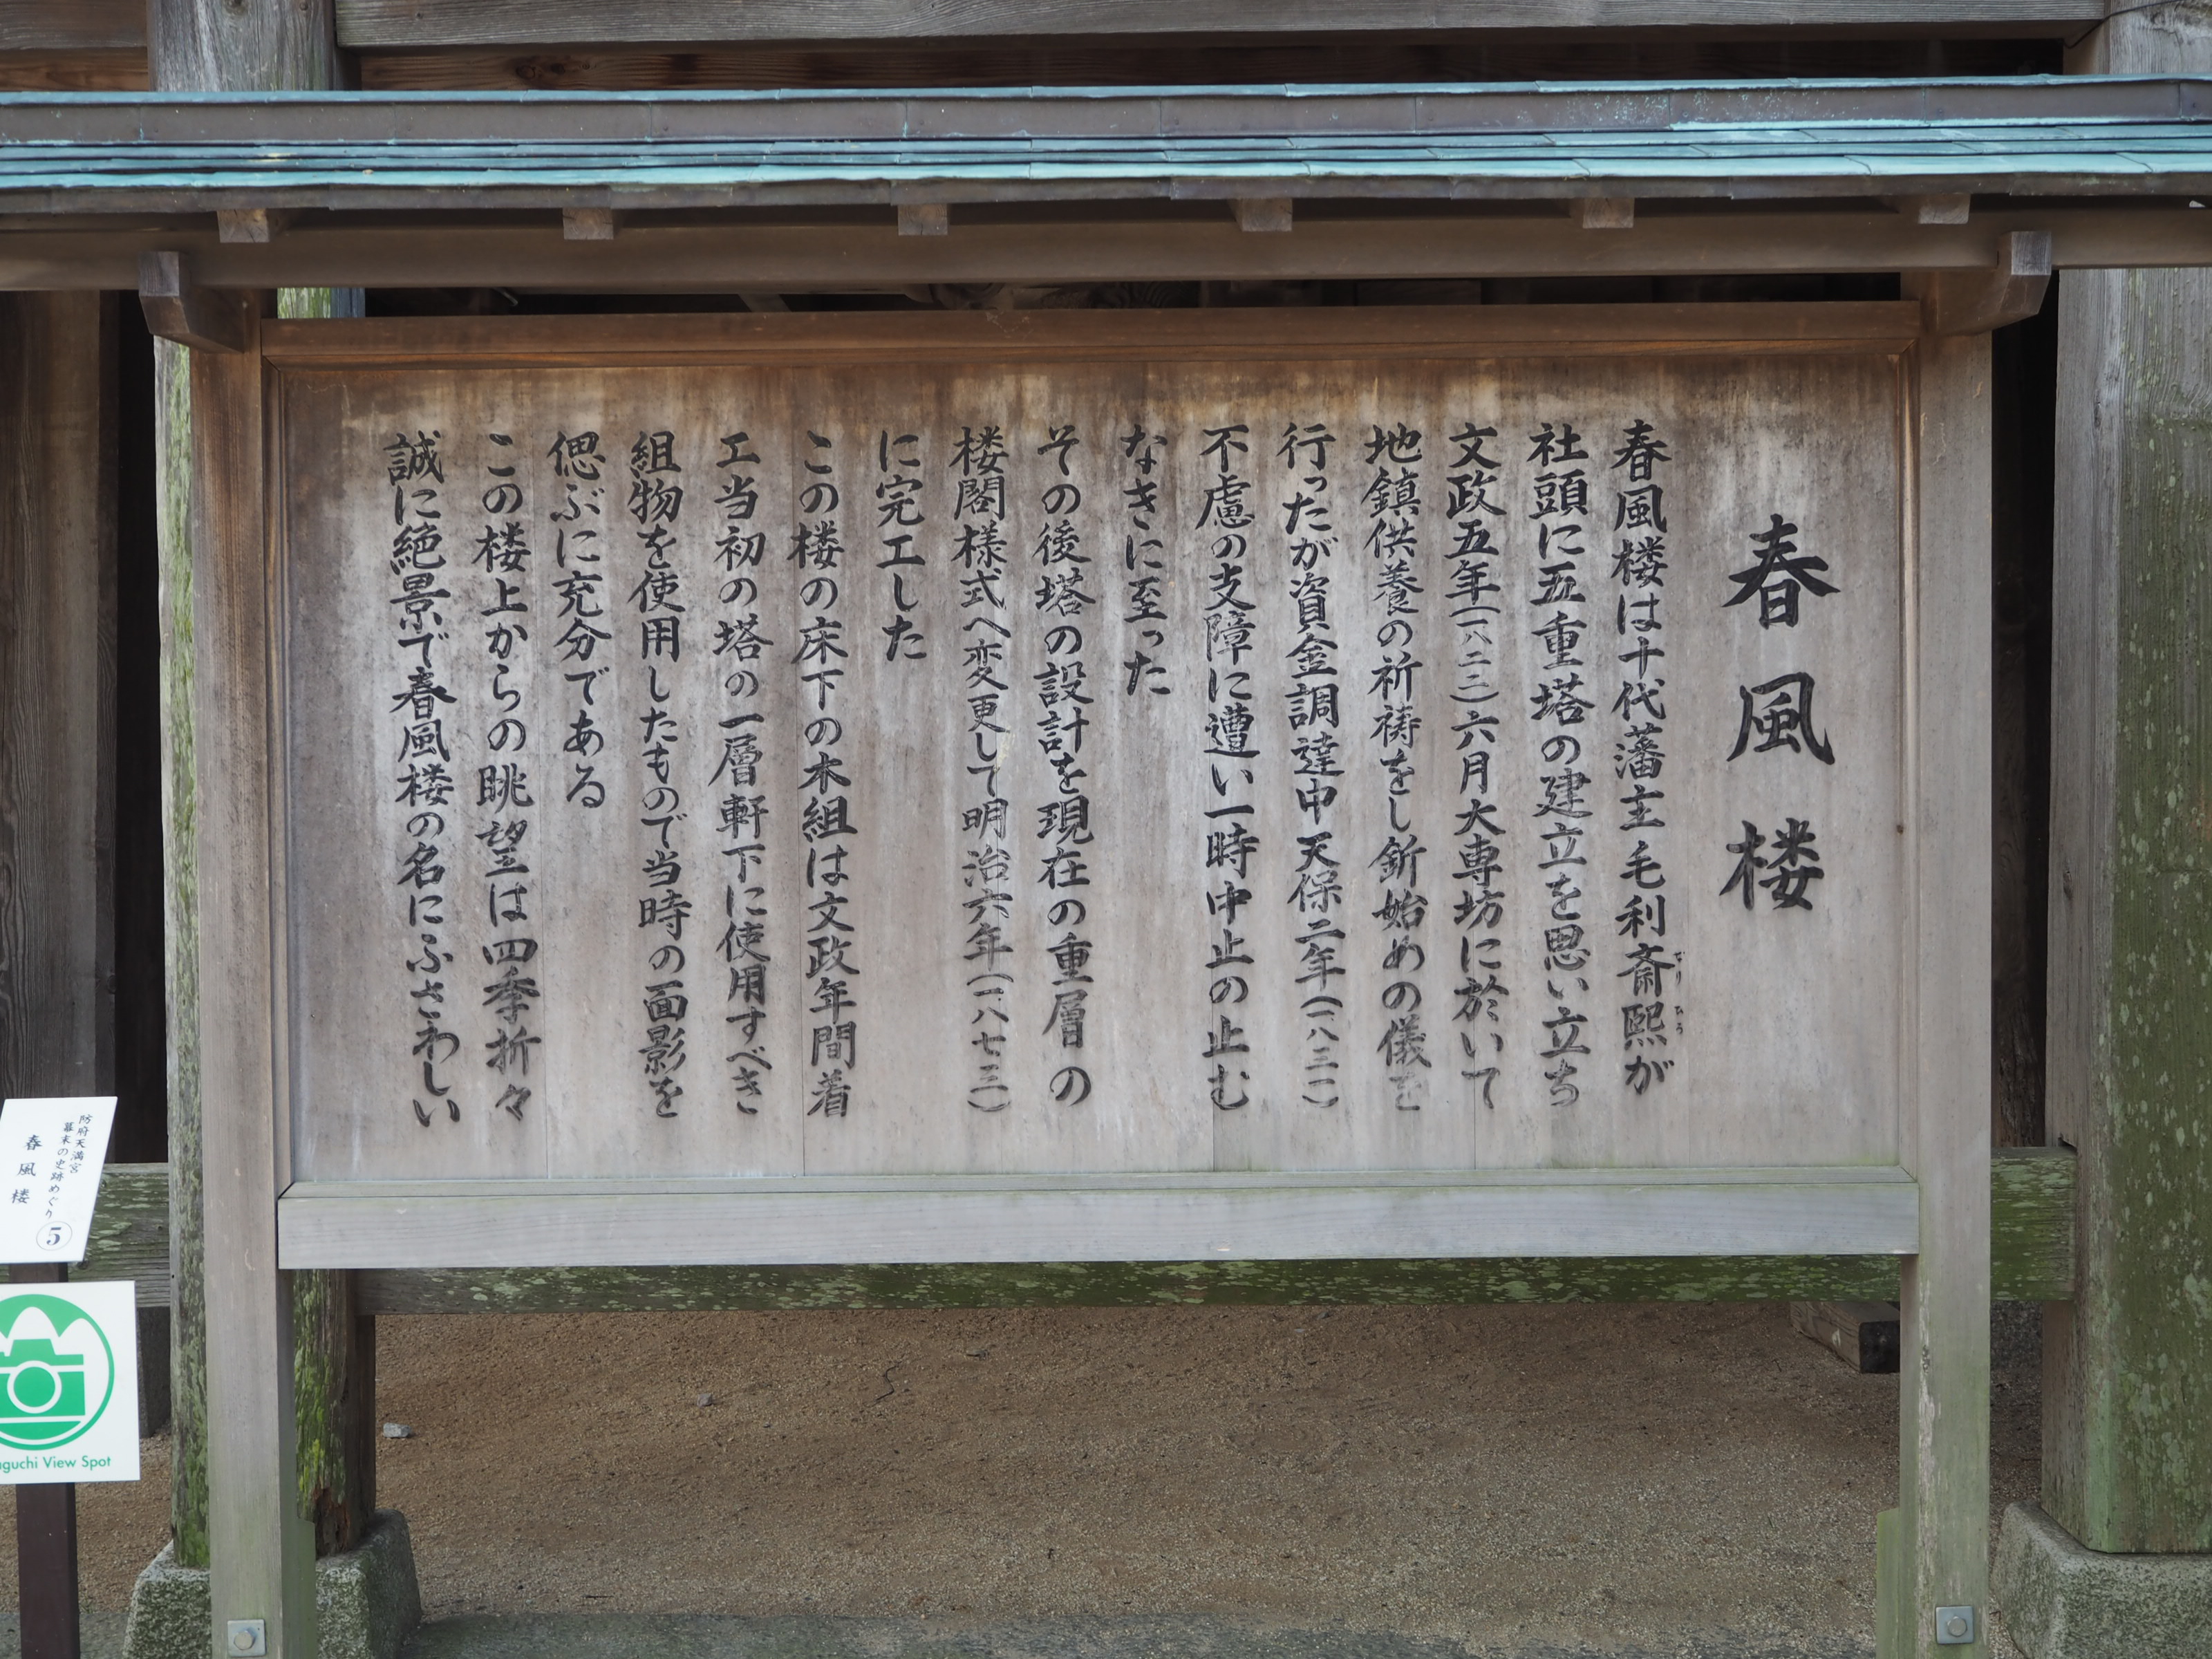 春風楼
春風楼は十代藩主毛利斎熙が
なり ひろ
社頭に五重塔の建立を思い立ち
文政五年(一八二二)六月大専坊に於いて
地鎮供養の祈祷をし釿始めの儀を
行ったが資金調達中天保二年(一八三一)
不慮の支障に遭い一時中止の止む
なきに至った
その後塔の設計を現在の重層の
楼閣様式へ変更して明治六年(一八七三)
に完工した
この楼の床下の木組は文政年間着
工当初の塔の一層軒下に使用すべき
組物を使用したもので当時の面影を
偲ぶに充分である
この楼上からの眺望は四季折々
誠に絶景で春風楼の名にふさわしい
防府天満宮
幕末の史跡めぐり
春風楼
5
aguchi View Spot